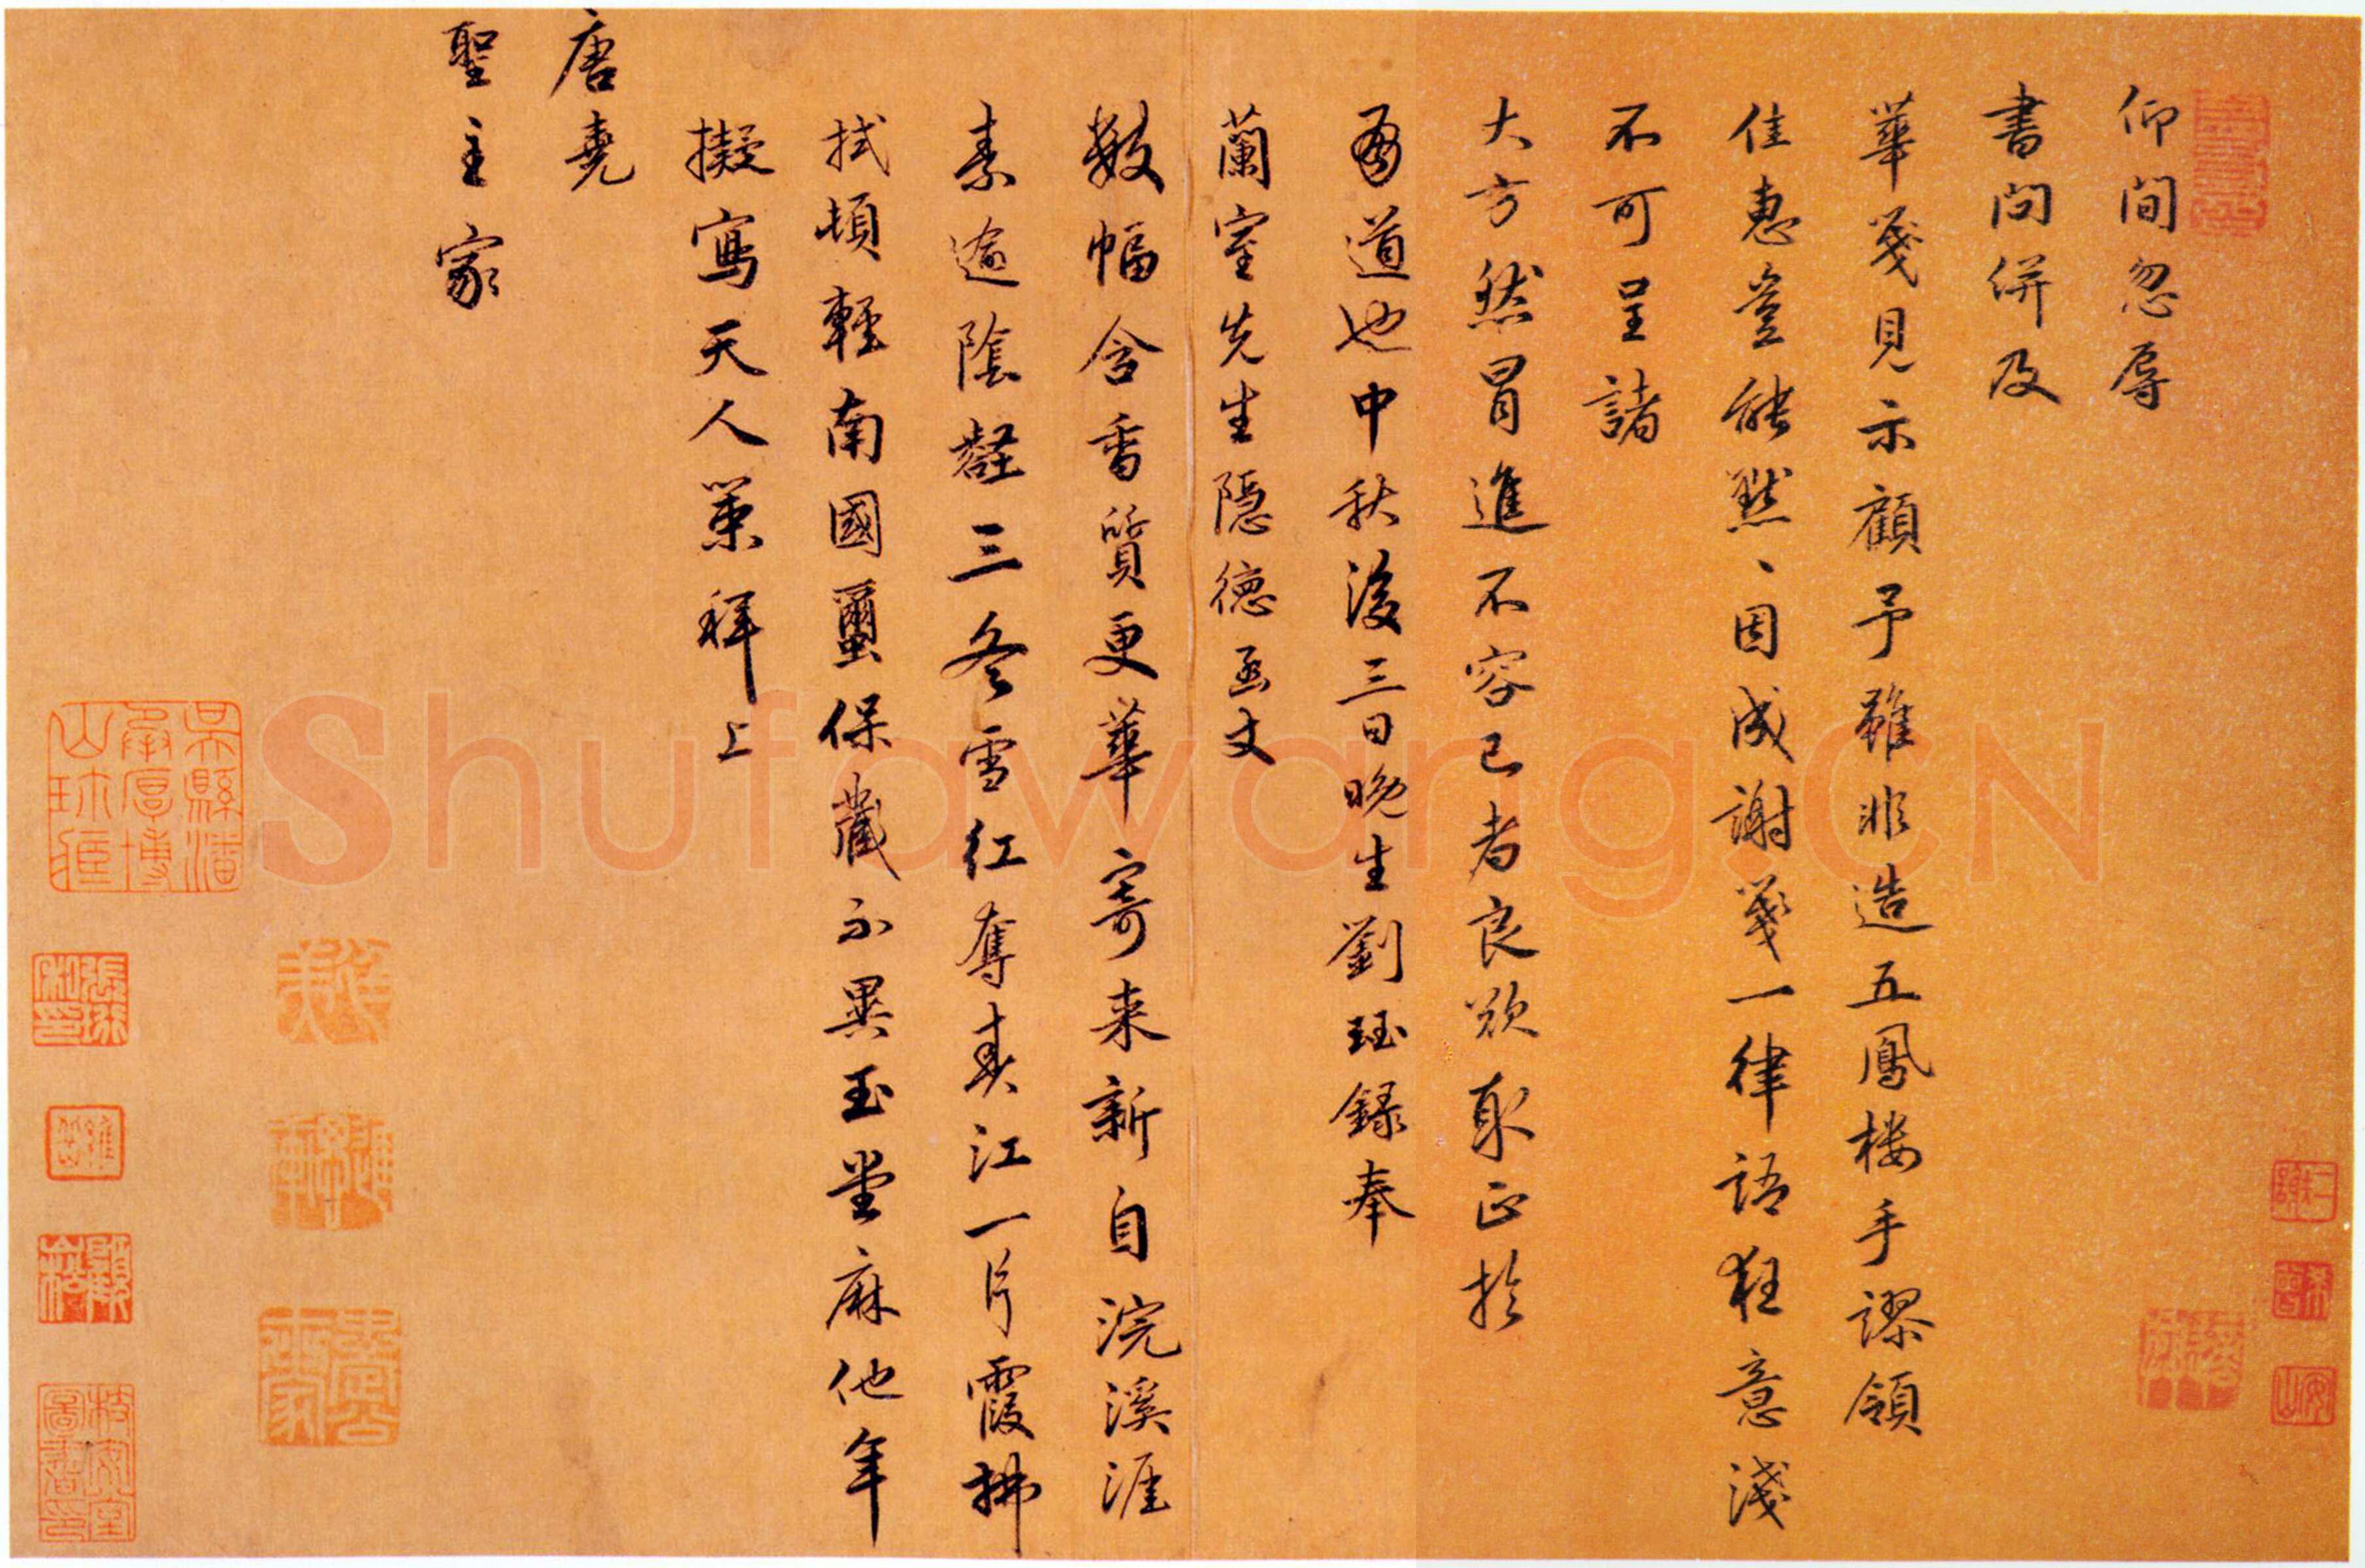 仰間忽辱
書問併及
華箋見示顧予雖非造五鳳楼手謬領
佳惠豈能黙、因成謝箋一律語狂意淺
不可呈諸
大方然冒進不容已者良欲取正於
有道也中秋後三日晚生劉珏録奉
蘭室先生隠德函丈
数幅含香質更華寄来新自浣溪涯
素逾陰壑三冬雪紅奪春江一片霞拂
拭頓輕南國蠒保藏不異玉堂麻他年
擬寫天人策拜上
唐堯
聖主家
Shufawang.CN